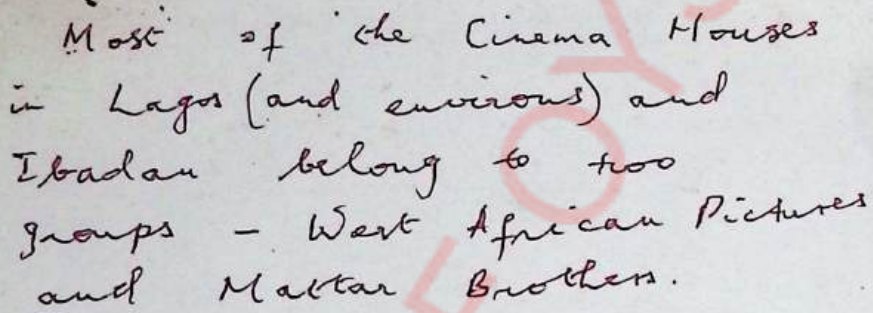 Most of the Cinema Houses
in Lagos (and environs) and
Ibadan belong to two
groups - West African Pictures
and Mattar Brothers.